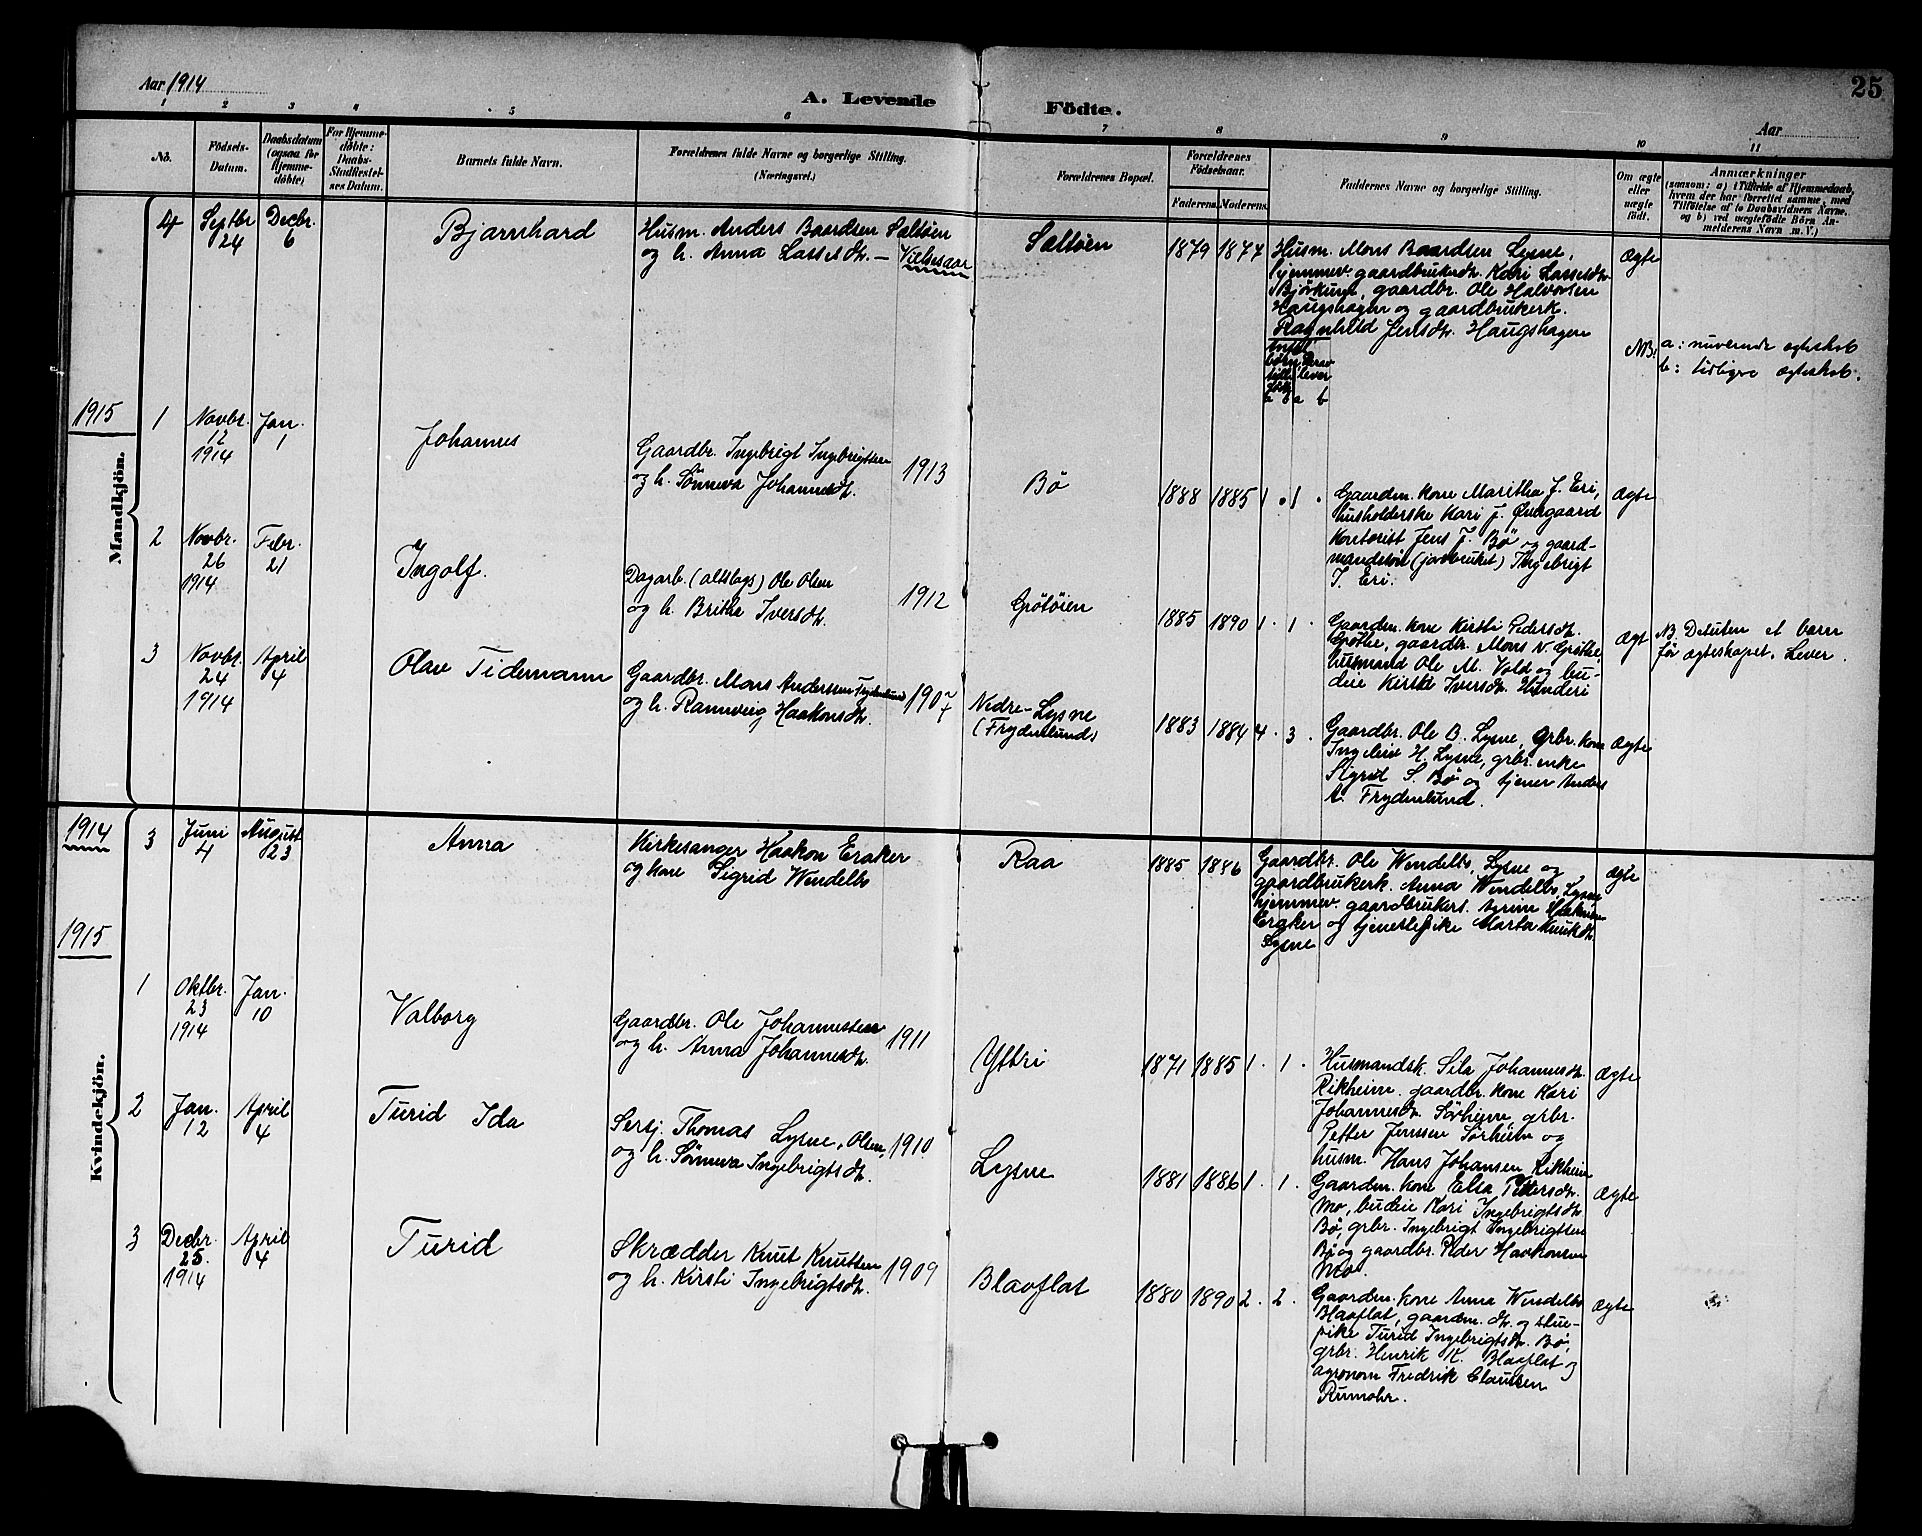 Aar 1914
A. Levende
Födte.
25
Aar
1 2 3 4 5 6 7 8 9 10 11
No.
Födsels-
Datum.
Daabsdatum
(ogsaa for
Hjemme-
döbte)
For Hjemme-
döbte:
Daabs-
Stadfæstel-
ses Datum.
Barnets fulde Navn.
Forældrenes fulde Navne og borgerlige Stilling.
(Næringsvei.)
Forældrenes Bopæl.
Forældrenes
Födselsaar.
Faderens. Moderens.
Faddernes Navne og borgerlige Stilling.
Om ægte
eller
uægte
födt.
Anmærkninger
(saasom: a) i Tilfælde af Hjemmedaab,
hvem der har forrettet samme, med
Tilföielse af to Daabsvidners Navne.
og b) ved uægtefödte Börn An-
melderens Navn m. V.)
Mandkjön.
4
Septbr
24
Decbr.
6
Bjarnhard
Husm. Anders Baardsen Sæltøen
og h. Anna Lassesdtr. — Vielsesaar
Sæltøen
1879 1877
Husm. Mons Baardsen Lysne,
hjemmev. gaardbrukerdtr. Kari Lassesdtr.
Bjørkum, gaardbr. Ole Halvorsen
Haugshagen og gaardbrukerk.
Ragnhild Jensdtr. Haugshagen
Ægte
Antal
børn
Derav
lever
a b a b
NB! a: nuværende ægteskab
b: tidligre ægteskab.
1915
1
Novbr.
12
1914
Jan.
1
Johannes
Gaardbr. Ingebrigt Ingebrigtsen
og h. Sønneva Johannesdtr.
1913
Bø
1888 1885 1 . 1 .
Gaardm. kone Maritha J. Eri,
husholderske Kari J. Øvregaard
Kontorist Jens J. Bø og gaard-
mandssøn (jordbruket) Ingebrigt
J. Eri.
Ægte
2
Novbr.
26
1914
Febr.
21
Ingolf.
Dagarb. (altslags) Ole Olsen
og h. Brithe Iversdtr.
1912
Grøtøien
1885 1890 1 . 1 .
Gaardm. kone Kirsti Pedersdtr.
Grøthe, gaardbr. Mons N. Grøthe,
husmand Ole M. Vold og bu-
deie Kirsti Iversdtr. Hunderi
Ægt
NB Desuten et barn
før ægteskapet. Lever.
3
Novbr.
24
1914
April
4
Olav Tidemann
Gaardbr. Mons Andersen Frydenlund
og h. Rannveig Haakonsdtr.
1907
Nedre-Lysne
(Frydenlund)
1883 1884 4 . 3 .
Gaardbr. Ole B. Lysne, grbr. kone
Ingeleiv H. Lysne, grbr. enke
Sigrid S. Bø og tjener Anders
A. Frydenlund.
Ægte
Kvindekjön.
1914
3
Juni
4
August
23
Anna
Kirkesanger Haakon Eraker
og kone Sigrid Wendelbo
Raa
1885 1886
Gaardbr. Ole Wendelbo, Lysne og
gaardbrukerk. Anna Wendelbo Lysne
hjemmev. gaardbrukers. Haakonsen
Eraker og tjenestepike Marta Knutsdtr.
Lysne
Ægte
1915
1
Oktbr.
23
1914
Jan.
10
Valborg
Gaardbr. Ole Johannessen
og h. Anna Johannesdtr.
1911
Yttri
1871 1885 1 . 1 .
Husmandsk. Sila Johannesdtr.
Rikheim, gaardbr. kone Kari
Johannesdtr. Sørheim, grbr.
Petter Jenssen Sørheim og
husm. Hans Johansen Rikheim
Ægte
2
Jan.
12
April
4
Turid Ida
Sersj. Thomas Lysne, Olsen,
og h. Sønneva Ingebrigtsdtr.
1910
Lysne
1881 1886 1 . 1 .
Gaardm. kone Elsa Pettersdtr.
Mo, budeie Kari Ingebrigtsdtr.
Bø, grbr. Ingebrigt Ingebrigtsen
Bø og gaardbr. Peder Haakonsen
Mo.
Ægte
3
Decbr.
25.
1914
April
4
Turid
Skrædder Knut Knutsen
og h. Kirsti Ingebrigtsdtr.
1909
Blaaflat
1880 1890 2 . 2 .
Gaardm. kone Anna Wendelbo
Blaaflat, gaardm. dtr. og stue-
pike Turid Ingebrigtsdtr. Bø,
grbr. Henrik K. Blaaflat og
agronom Fredrik Claussen
Rumohr.
Ægte